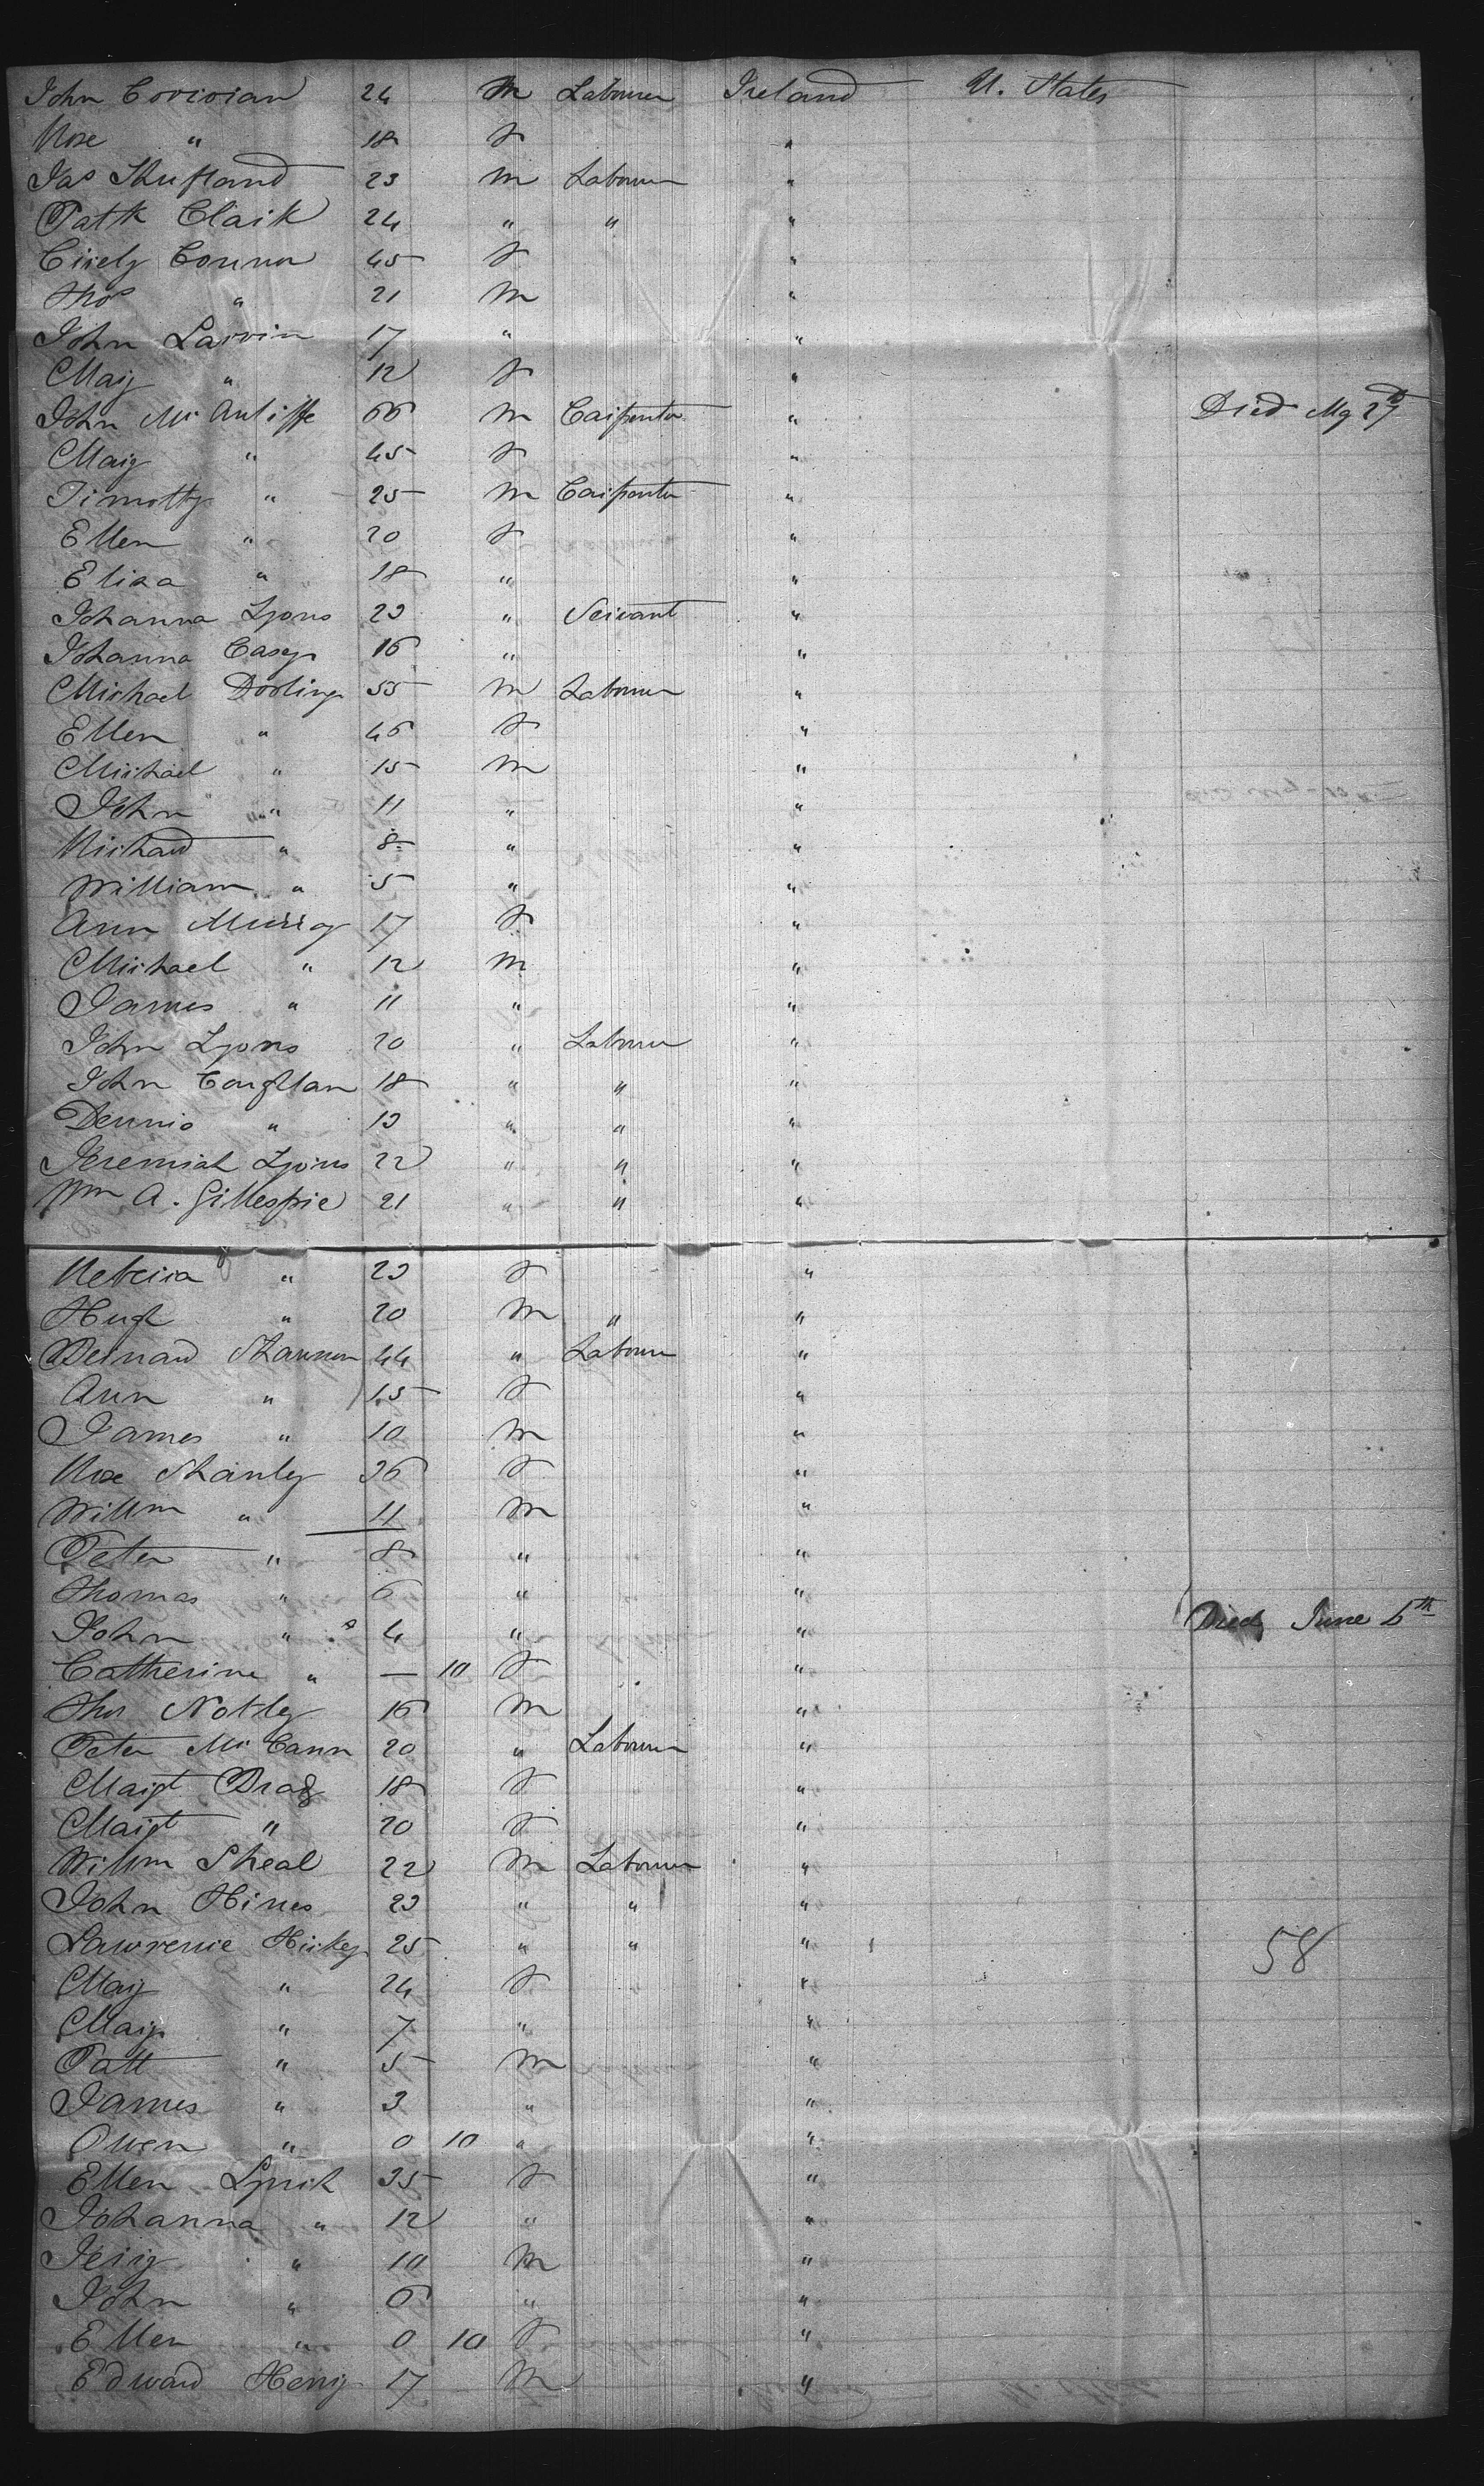 John Corcoran 24 M Labourer Ireland U. States
Rose " 18 F "
Jas Shufland 23 M Labourer "
Patk Clark 24 " " "
Cicely Connor 45 F "
Thos " 21 M "
John Larvin 17 " "
Mary " 12 F "
John McAuliffe 66 M Carpenter " Died My 27th
Mary " 45 F "
Timothy " 25 M Carpenter "
Ellen " 20 F "
Eliza " 18 " "
Johanna Lyons 23 " Servant "
Johanna Casey 16 " "
Michael Dooling 55 M Labourer "
Ellen " 46 F "
Michael " 15 M "
John " 11 " "
Richard " 8 " "
William " 5 " "
Ann Murray 17 F "
Michael " 12 M "
James " 11 " "
John Lyons 20 " Labourer "
John Coughlan 18 " " "
Dennis " 13 " " "
Jeremiah Lyons 22 " " "
Wm A. Gillespie 21 " " "
Rebecca " 23 F "
Hugh " 20 M " "
Bernard Shannon 44 " Labourer "
Ann " 15 F "
James " 10 M "
Rose Shanley 36 F "
Willm " 11 M "
Peter " 8 " "
Thomas " 6 " "
John " 4 " " Died June 6th
Catherine " — 10 F "
Thos Notley 16 M "
Peter McCann 20 " Labourer "
Margt Brady 18 F "
Margt " 20 F "
Willm Sheal 22 M Labourer "
John Hines 23 " " "
Lawrence Hickey 25 " " " 58
Mary " 24 F "
Mary " 7 " "
Patt " 5 M "
James " 3 " "
Owen " 0 10 " "
Ellen Lynch 35 F "
Johanna " 12 " "
Jerry " 10 M "
John " 6 " "
Ellen " 0 10 F "
Edward Henry 17 M "